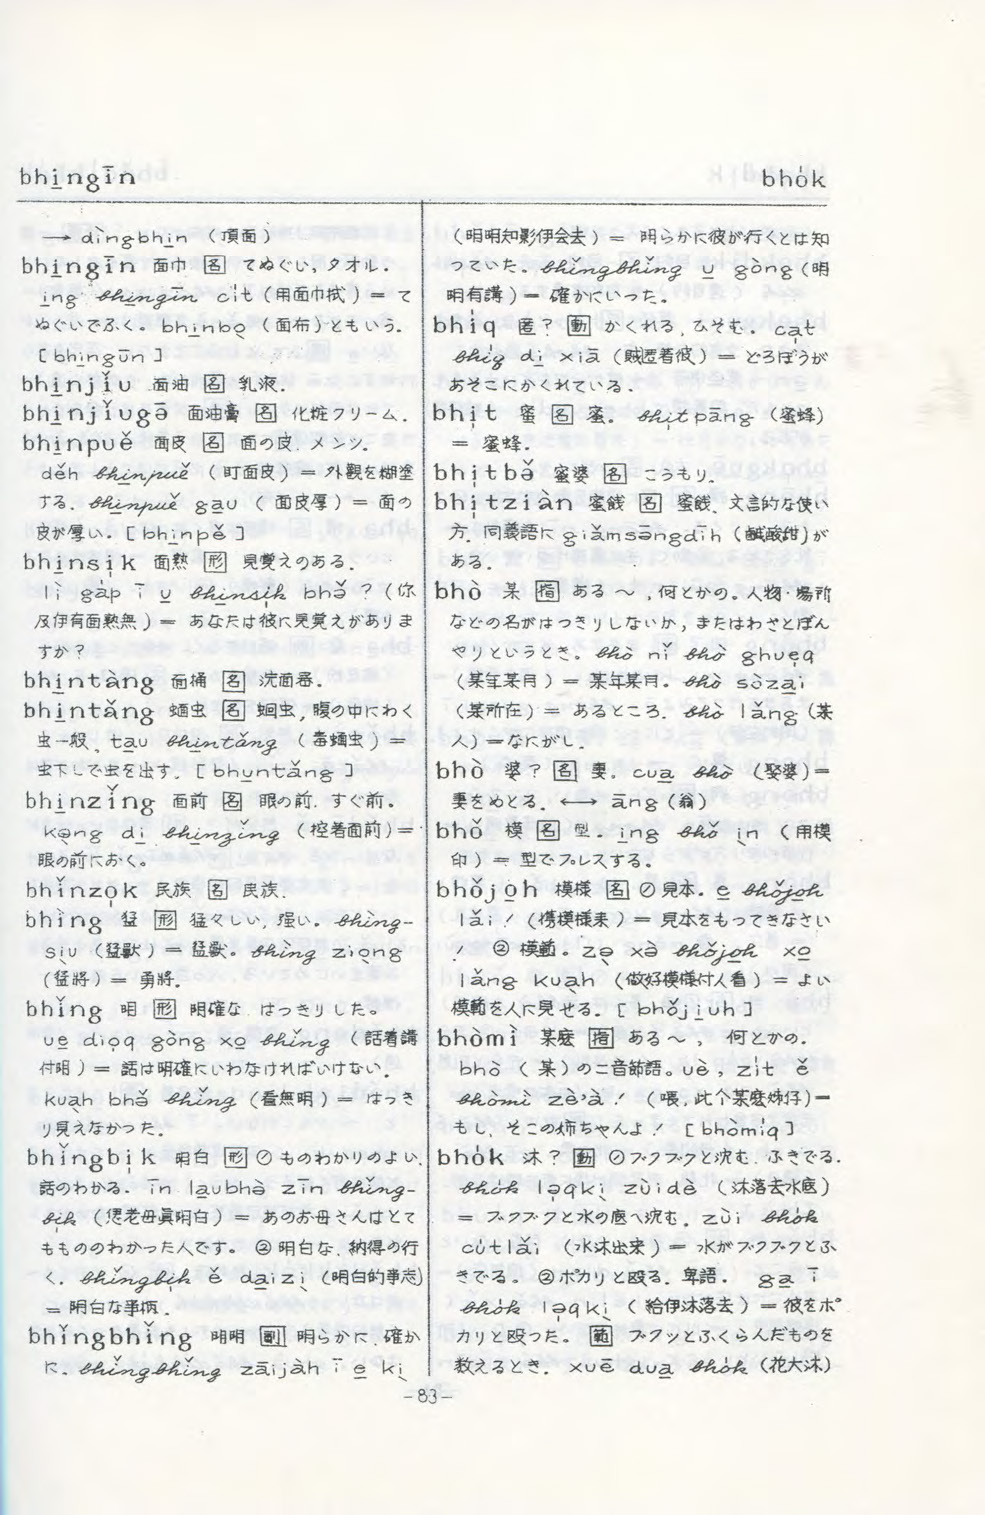 bhi̲ngīn
bho̍k
→ dìngbhi̲n (頂面)
bhi̲ngīn 面巾 [名] てぬぐい, タオル.
i̲ng bhi̲ngīn ci̍t (用面巾拭) = て
ぬぐいでふく。 bhi̲nbo̖ (面布)ともいう.
[bhi̲ngūn]
bhi̲njǐu 面油 [名] 乳液.
bhi̲njǐugō 面油膏 [名] 化粧クリーム.
bhi̲npuě 面皮 [名] 面の皮. メンツ.
děh bhi̲npuě (町面皮) = 外觀を糊塗
する. bhi̲npuě ga̲u (面皮厚) = 面の
皮が厚い. [bhi̲npě]
bhi̲nsi̍k 面熟 [形] 見覚えのある.
lì ga̍p ī u̲ bhi̲nsi̍k bhǒ? (你
及伊有面熟無) = あなたは彼に見覚えがありま
すか?
bhi̲ntàng 面桶 [名] 洗面器.
bhi̲ntǎng 蛔虫 [名] 蛔虫, 腹の中にわく
虫一般. ta̲u bhi̲ntǎng (毒蛔虫) =
虫下しで虫を出す. [bhu̲ntǎng]
bhi̲nzǐng 面前 [名] 眼の前. すぐ前.
ka̖ng di̲ bhi̲nzǐng (控着面前) =
眼の前におく。
bhǐnzo̍k 民族 [名] 民族.
bhìng 猛 [形] 猛々しい, 强い. bhìng-
siu̖ (猛獸) = 猛獣. bhìng zio̖ng
(猛將) = 勇將.
bhǐng 明 [形] 明確な. はっきりした。
ue̲ dio̍q gòng xo̲ bhǐng (話着講
付明) = 話は明確にいわなければいけない。
kua̖h bhǒ bhǐng (看無明) = はっき
り見えなかった.
bhǐngbi̍k 明白 [形] ① ものわかりのよい.
話のわかる. in la̲ubhò zīn bhǐng-
bi̍k (怹老母眞明白) = あのお母さんはとて
ももののわかった人です。 ② 明白な. 納得の行
く. bhǐngbi̍k ě da̲izi̖ (明白的事志)
= 明白な事柄.
bhǐngbhǐng 明明 [副] 明らかに. 確か
に. bhǐngbhǐng zāijàh ī e̲ ki̖
(明明知影伊会去) = 明らかに彼が行くとは知
っていた. bhǐngbhǐng u̲ gòng (明
明有講) = 確かにいった。
bhi̍q 匿? [動] かくれる. ひそむ. ca̍t
bhi̍q di̲ xiā (賊匿着彼) = どろぼうが
あそこにかくれている.
bhi̍t 蜜 [名] 蜜. bhi̍tpāng (蜜蜂)
= 蜜蜂.
bhi̍tbǒ 蜜婆 [名] こうもり.
bhi̍tziàn 蜜餞 [名] 蜜餞. 文言的な使い
方. 同義語に giǎmsōngdīh (鹹酸甜)が
ある.
bhò 某 [指] ある〜, 何とかの. 人物・場所
などの名がはっきりしないか, またはわざとぼん
やりというとき. bhò nǐ bhò ghue̍q
(某年某月) = 某年某月. bhò sòza̲i
(某所在) = あるところ. bhò lǎng (某
人) = なにがし.
bhò 婆? [名] 妻. cua̲ bhò (娶婆) =
妻をめとる. ←→ āng (翁)
bhǒ 模 [名] 型. i̲ng bhǒ in̖ (用模
印) = 型でプレスする.
bhǒjo̲h 模様 [名] ① 見本. e̲ bhǒjo̲h
lǎi! (携模様来) = 見本をもってきなさい
! ② 模範。 zo̖ xò bhǒjo̲h xo̲
lǎng kua̖h (做好模様付人看) = よい
模範を人に見せる. [bhǒji̲uh]
bhòmì 某麼 [指] ある〜, 何とかの.
bhò (某)の二音節語. ue̖, zi̍t ě
bhòmì zè'à! (喂, 此个某麼姉仔) =
もし, そこの姉ちゃんよ! [bhòmi̍q]
bho̍k 沐? [動] ① ブクブクと沈む. ふきでる.
bho̍k lo̍qki̖ zùidè (沐落去水底)
= ブクブクと水の底へ沈む。 zùi bho̍k
cu̍tlǎi (水沐出来) = 水がブクブクとふ
きでる. ② ポカリと殴る. 卑語. ga̲ ī
bho̍k lo̍qki̖ (給伊沐落去) = 彼をポ
カリと殴った. [範] プクッとふくらんだものを
数えるとき. xuē dua̲ bho̍k (花大沐)
-83-